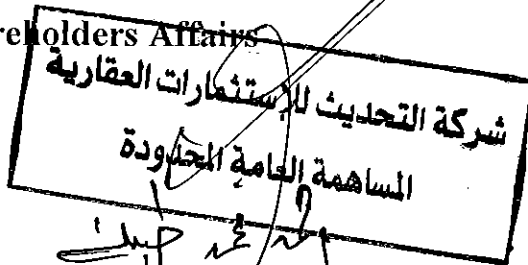 reholders Affairs
شركة التحديث للإستثمارات العقارية
المساهمة العامة المحدودة
محمد